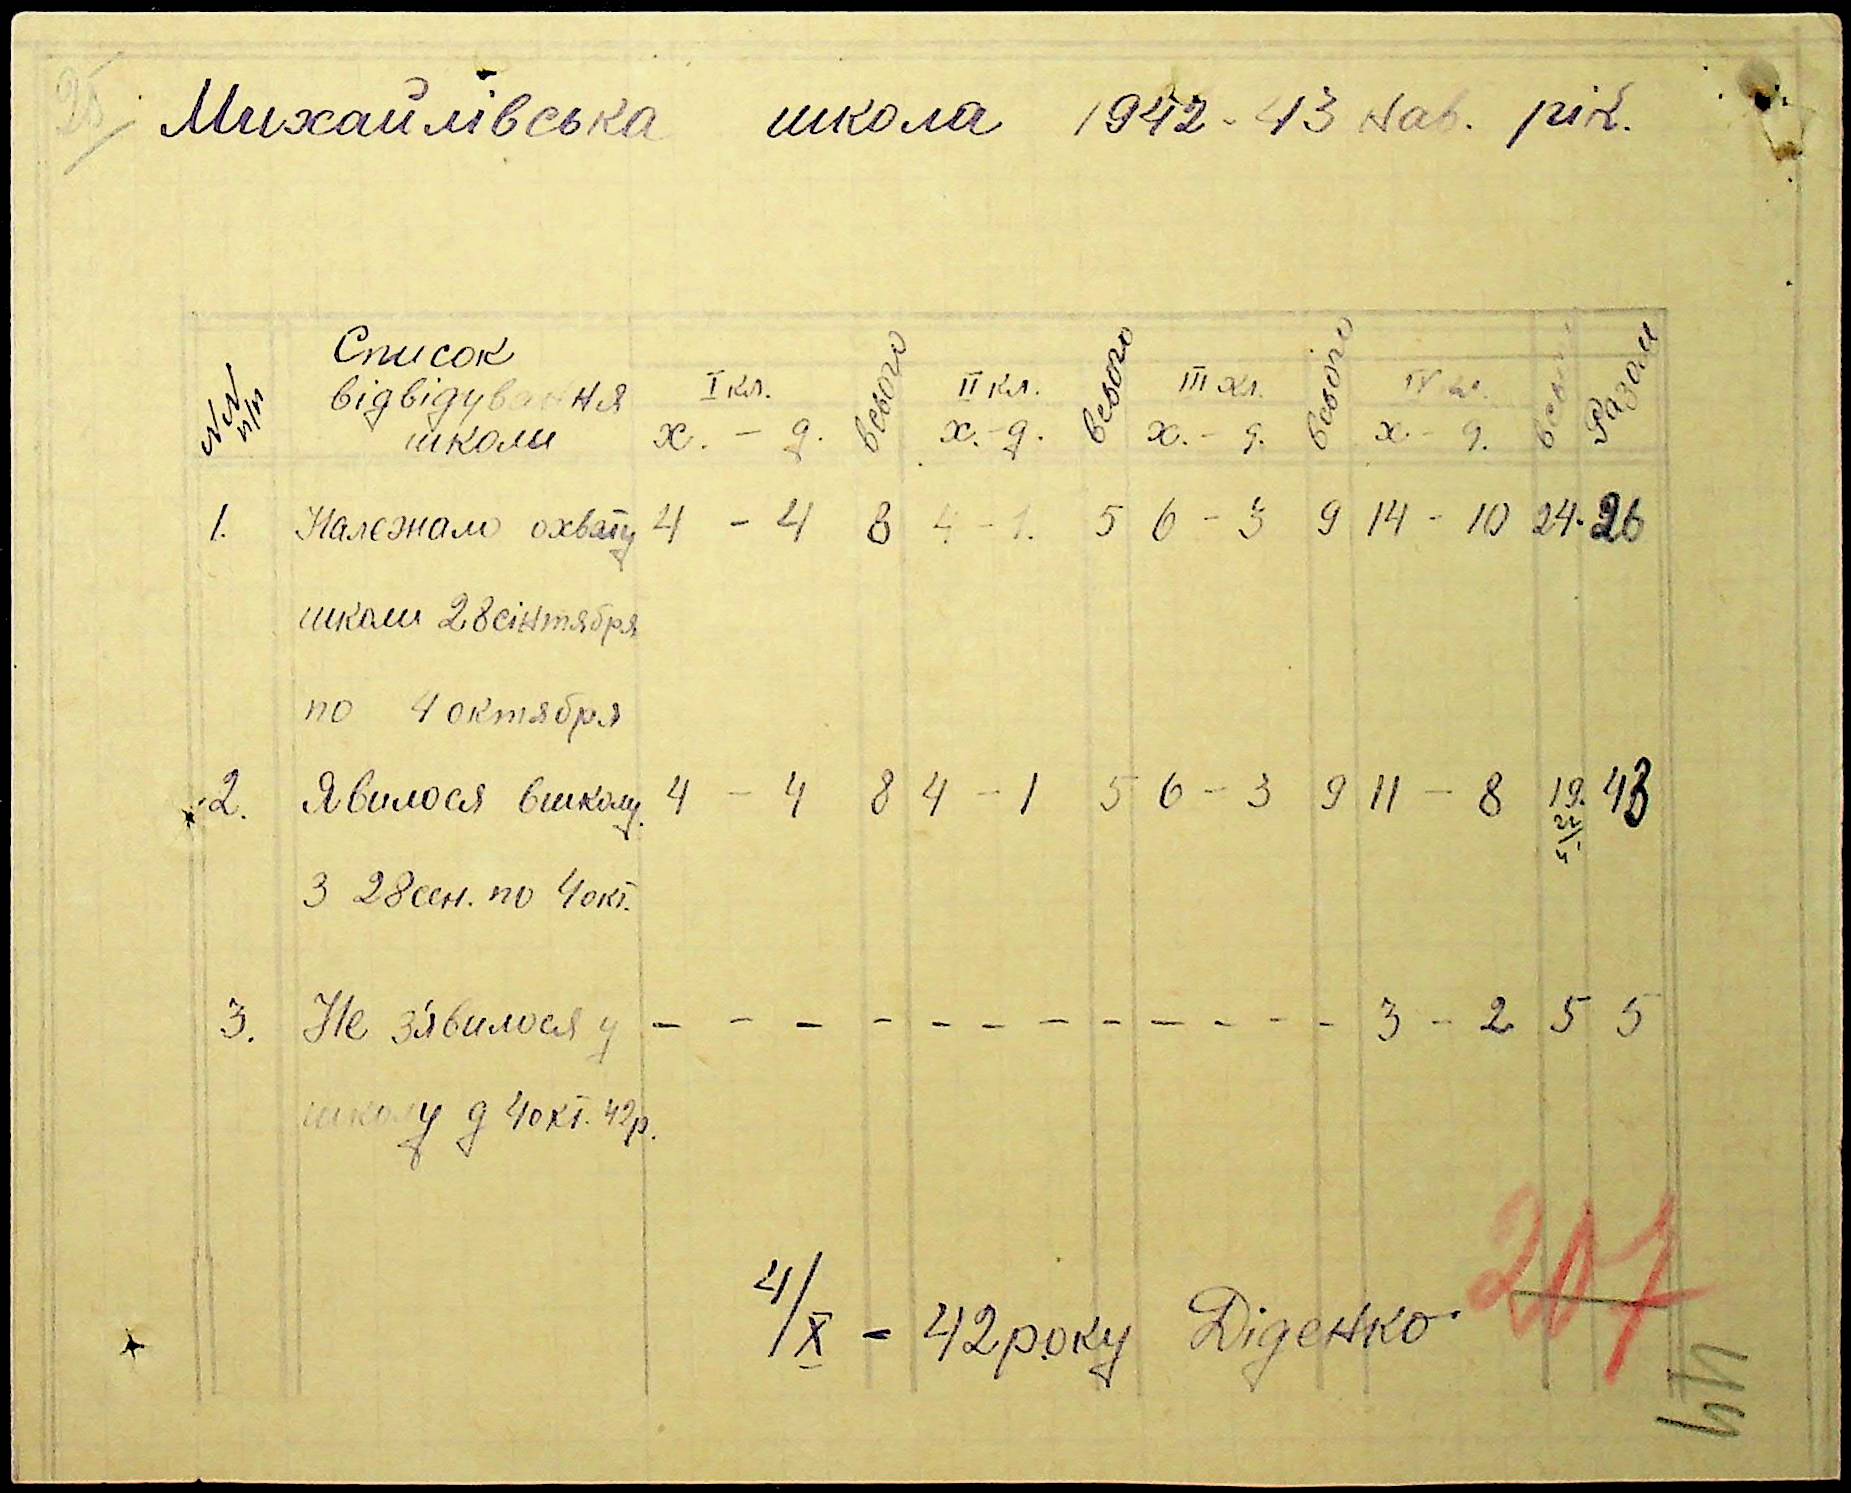 25
Михайлівська школа 1942-43 нав. рік.
№№ п/п Список відвідування школи I кл. всього II кл. всього III кл. всього IV кл. всього Разом
х. - д. х. - д. х. - д. х - д.
1. Належало охвату 4 - 4 8 4 - 1. 5 6 - 3 9 14 - 10 24. 26
школи 28 сінтября
по 4 октября
2. Явилося вшколу. 4 - 4 8 4 - 1 5 6 - 3 9 11 - 8 19. 43
З 28 сен. по 4 окт.
3. Не з'явилося у - - - - - - - - - - - - 3 - 2 5 5
школу д 4 окт. 42р.
4/X - 42 року Діденко
207
44